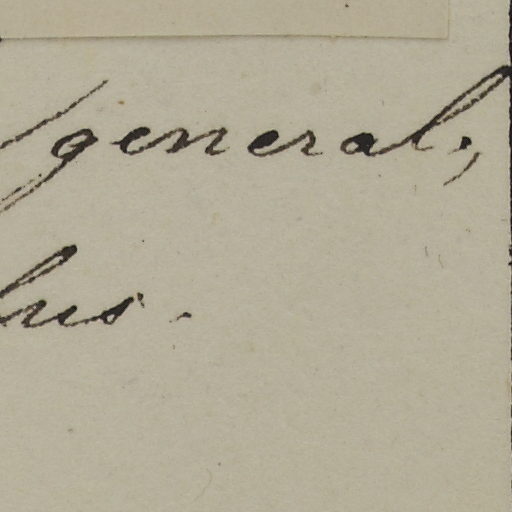 general;
lus.